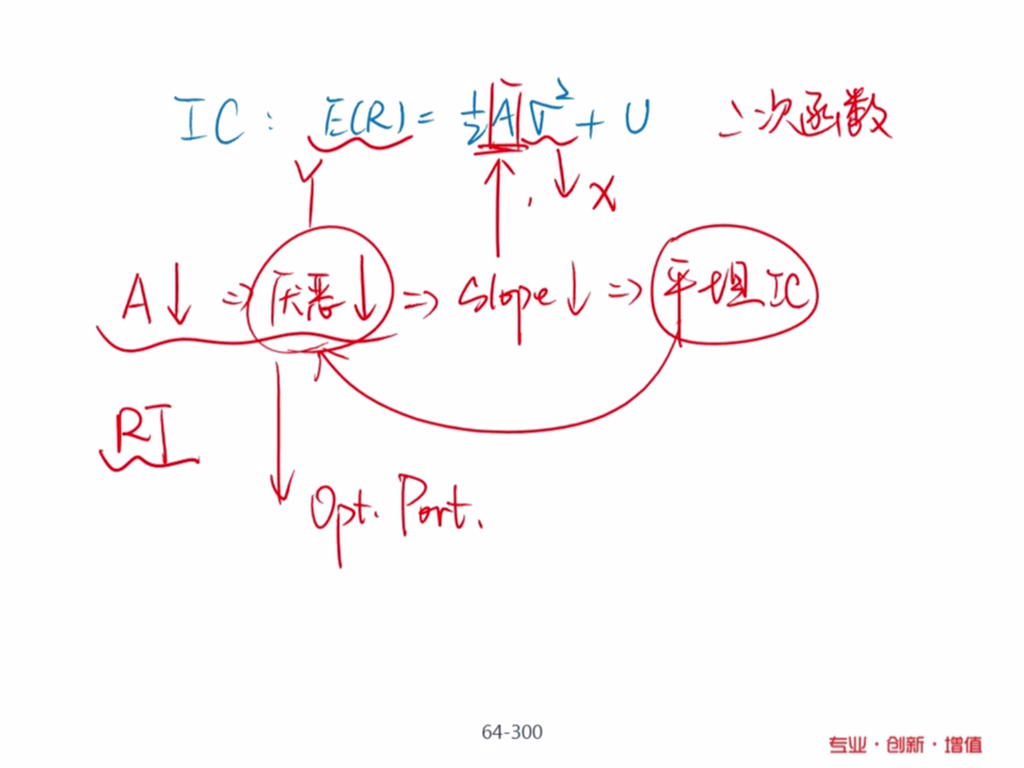 IC: E(R) = ½Aσ² + U 二次函数
Y X
A↓ ⇒ 厌恶↓ ⇒ slope↓ ⇒ 平坦IC
RT
Opt. Port.
64-300
专业·创新·增值